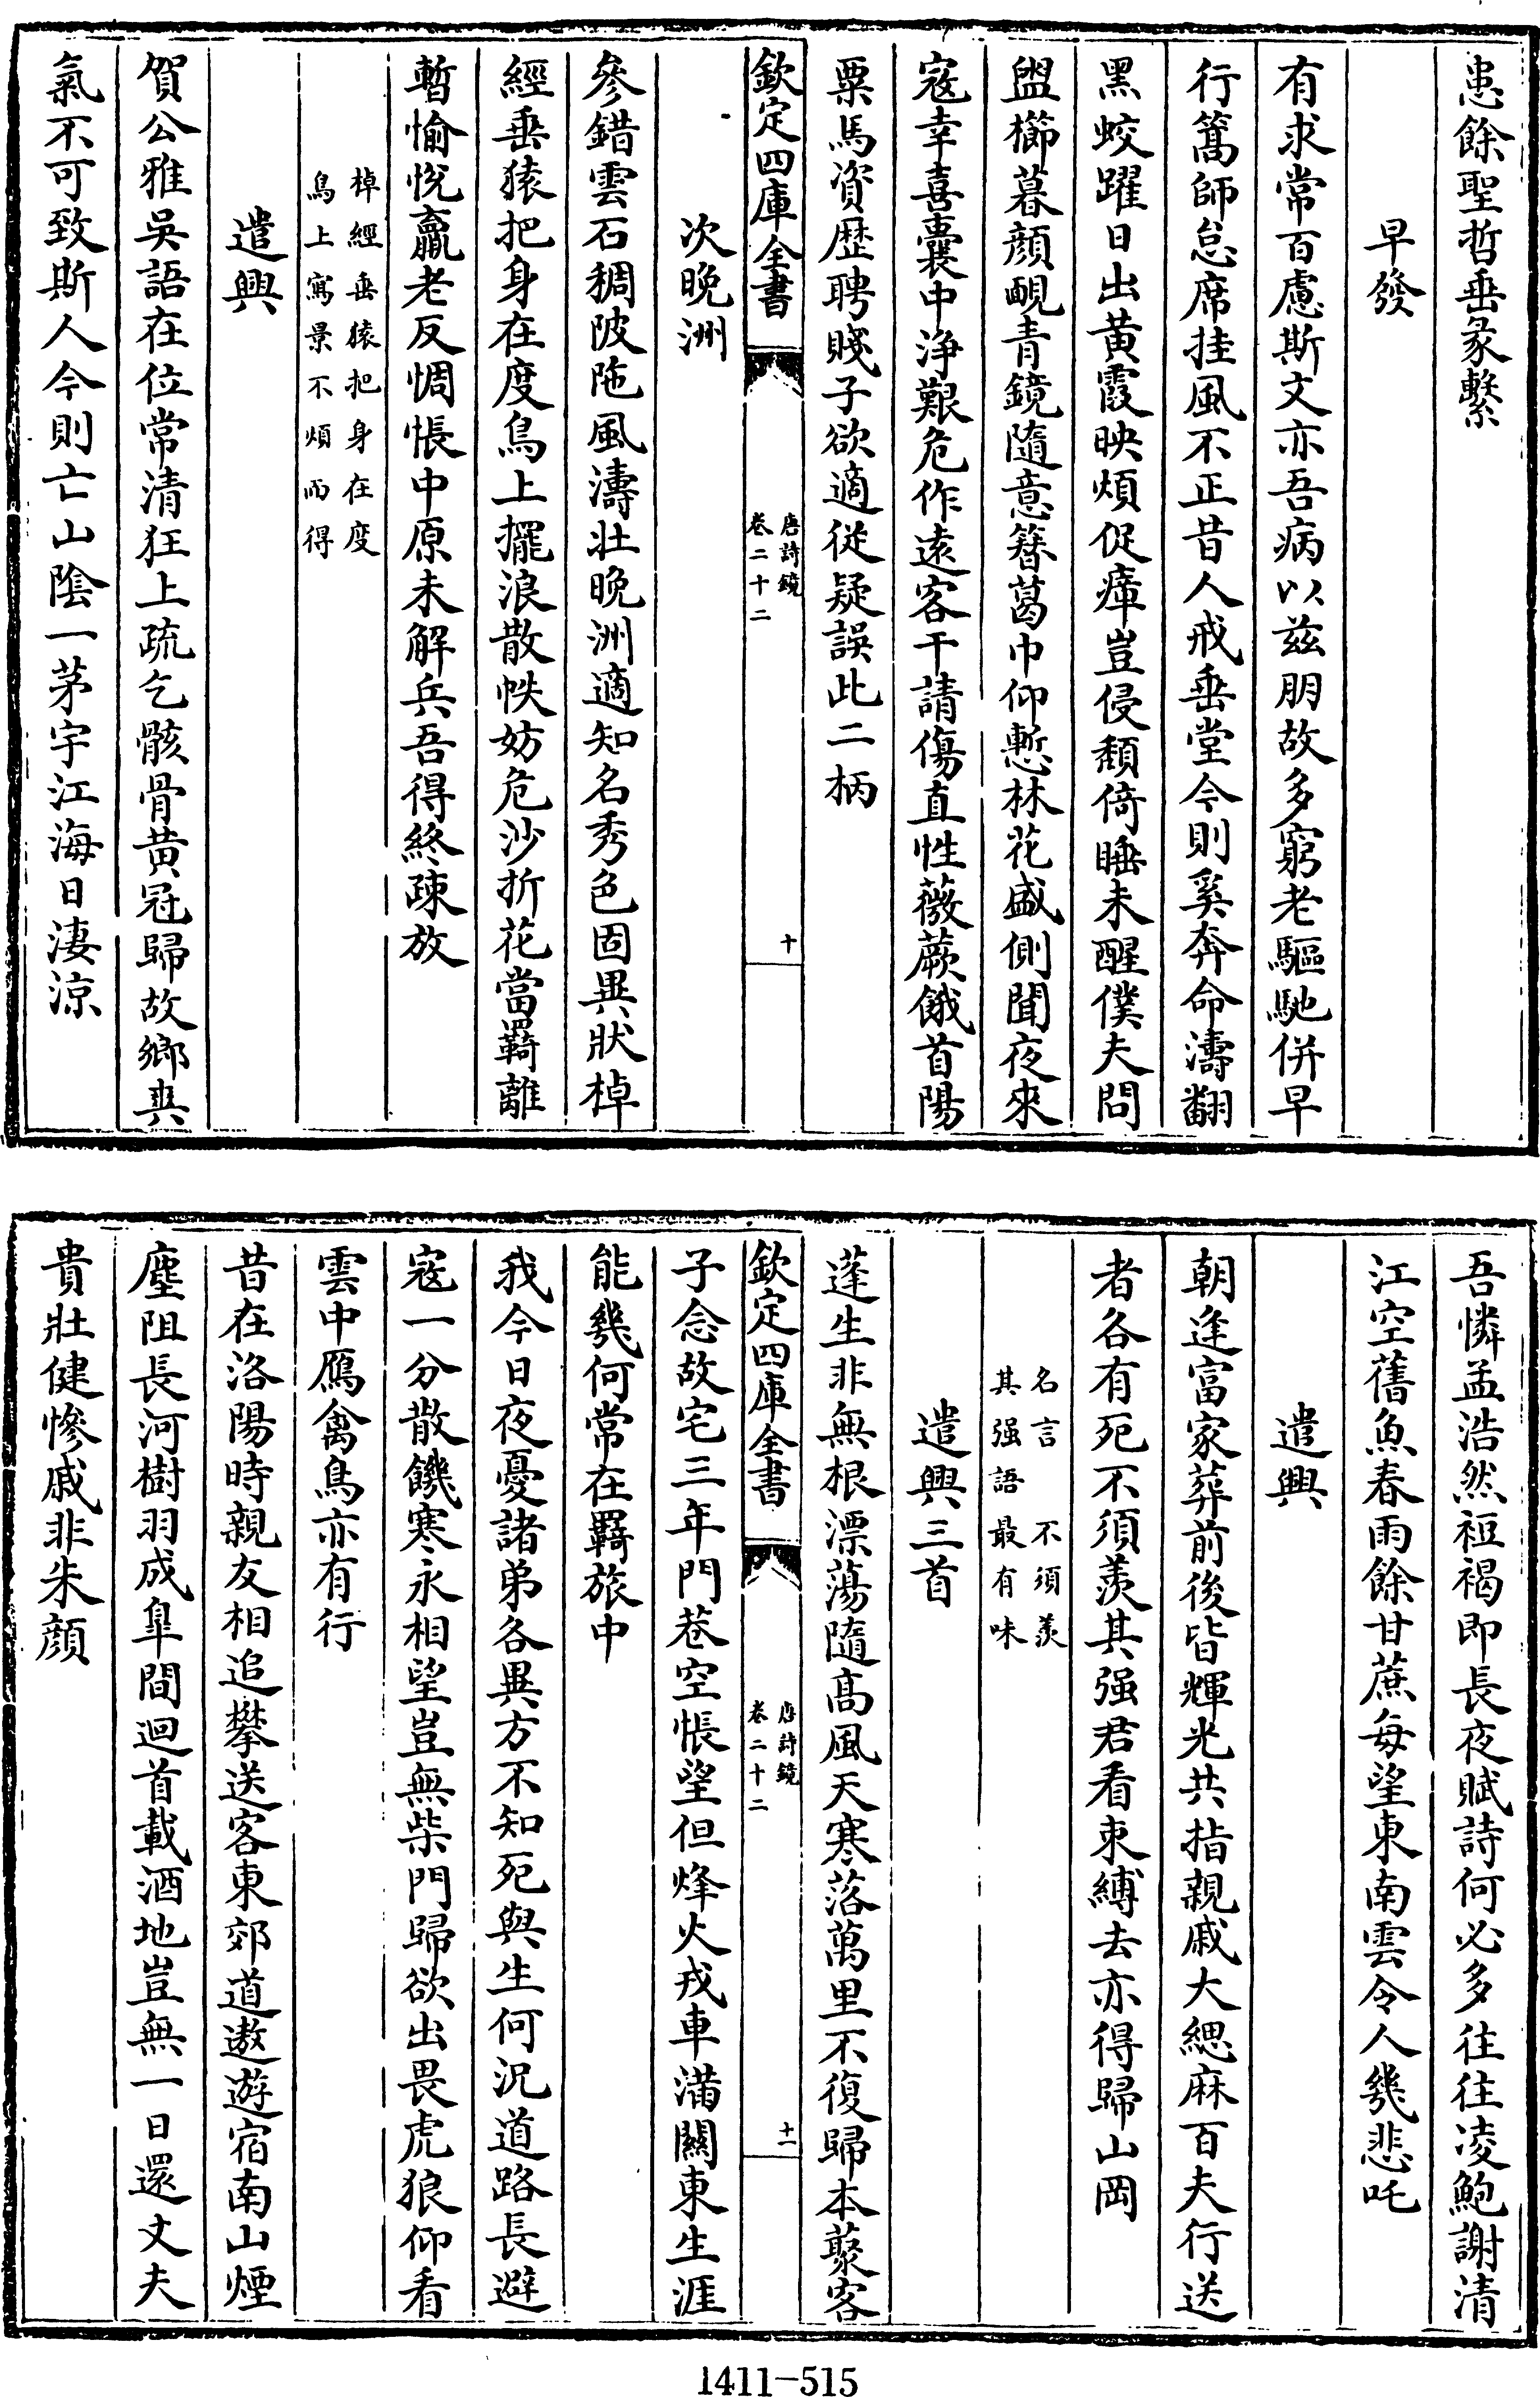 患餘聖哲垂彖繫
早發
有求常百慮斯文亦吾病以兹朋故多窮老驅馳併早
行篙師怠席挂風不正昔人戒垂堂今則奚奔命濤翻
黑蛟躍日出黄霞映煩促瘴豈侵頽倚睡未醒僕夫問
盥櫛暮顔靦青鏡隨意簪葛巾仰慙林花盛側聞夜來
寇幸喜囊中浄艱危作逺客干請傷直性薇蕨餓首陽
粟馬資歴聘賤子欲適從疑誤此二柄
欽定四庫全書
唐詩鏡
卷二十二
十
次晩洲
參錯雲石稠陂陁風濤壯晩洲適知名秀色固異狀棹
經垂猿把身在度鳥上擺浪散帙妨危沙折花當羇離
暫愉悦羸老反惆悵中原未解兵吾得終疎放
棹經垂猿把身在度
鳥上寫景不煩而得
遣興
賀公雅吳語在位常清狂上疏乞骸骨黄冠歸故鄉爽
氣不可致斯人今則亡山隂一茅宇江海日淒涼
吾憐孟浩然裋褐即長夜賦詩何必多往往凌鮑謝清
江空舊魚春雨餘甘蔗每望東南雲令人幾悲吒
遣興
朝逢富家葬前後皆輝光共指親戚大緦麻百夫行送
者各有死不須羨其强君看束縛去亦得歸山岡
名言 不須羨
其强語最有味
遣興三首
蓬生非無根漂蕩隨髙風天寒落萬里不復歸本叢客
欽定四庫全書
唐詩鏡
卷二十二
十一
子念故宅三年門巷空悵望但烽火戎車滿關東生涯
能幾何常在羇旅中
我今日夜憂諸弟各異方不知死與生何況道路長避
寇一分散饑寒永相望豈無柴門歸欲出畏虎狼仰看
雲中鴈禽鳥亦有行
昔在洛陽時親友相追攀送客東郊道遨遊宿南山煙
塵阻長河樹羽成臯間迴首載酒地豈無一日還丈夫
貴壯健慘戚非朱顔
1411-515